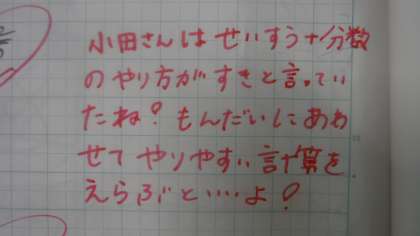 小田さんはせいすう+分数
のやり方がすきと言ってい
たね？もんだいにあわ
せてやりやすい計算を
えらぶと‥‥よ！